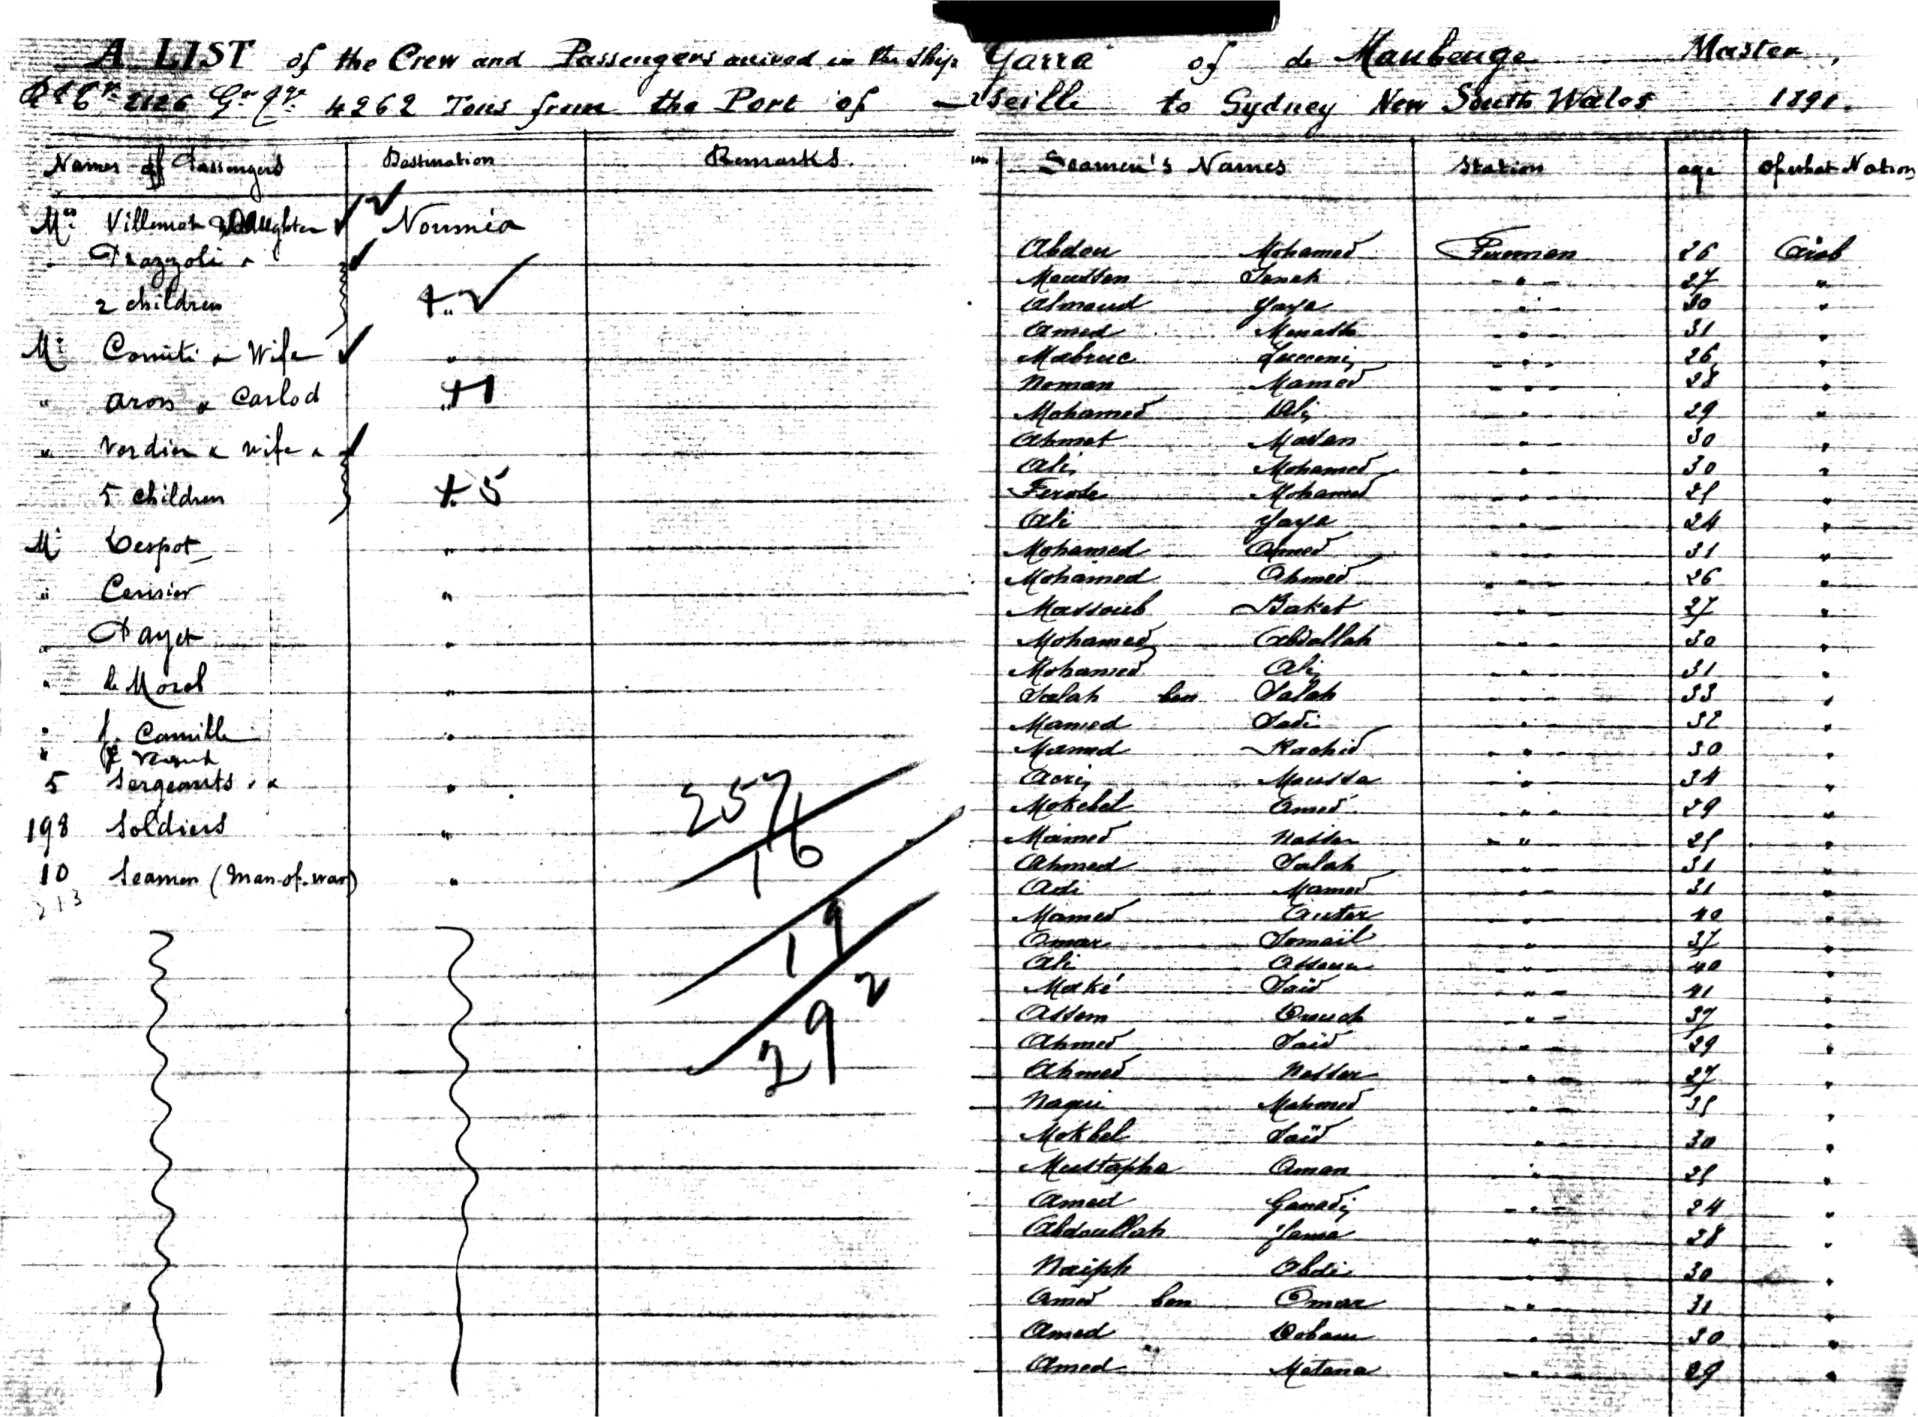 A LIST of the Crew and Passengers arrived in the ship Yarra of de Maubeuge Master,
2126 4262 Tons from the Port of seille to Sydney New South Wales 1891.
Names of Passengers Destination Remarks.
Villemot Daughter Nouméa
2 children " + 2
Mr Comiti & Wife "
" Aron & Carlod " + 1
" Verdier & wife &
5 children + 5
Mr Despot "
" Cerisier "
" Payet "
" de Morel "
" J. Camille "
"
5 Sergeants "
198 Soldiers "
10 Seamen (Man-of-war) "
213
257
16
19
292
Seamen's Names Station age Of what Nation
Abdou Mohamed Fireman 26 Arab
Moussen Saneh " 27 "
Yaya " 30 "
Amed " 31 "
Mabruc " 26 "
Noman Mamed " 28 "
Mohamed Ali " 29 "
Ahmet " 30 "
Ali Mohamed " 30 "
Ferode Mohamed " 25 "
Ali Yaya " 24 "
Mohamed Amed " 31 "
Mohamed Ahmed " 26 "
Massoub Baket " 27 "
Mohamed Abdallah " 30 "
Mohamed Ali " 31 "
Salah ben Salah " 33 "
Mamed Sadi " 32 "
Mamed Rachid " 30 "
Moussa " 34 "
Mokebel Amed " 29 "
Mamed Nasser " 25 "
Ahmed Salah " 31 "
Adi Mamed " 31 "
Mamed " 40 "
Omar Ismail " 37 "
Ali " 40 "
Maké Said " 41 "
Assem " 37 "
Ahmed Said " 29 "
Ahmed Nasser " 27 "
Nagui Mahmed " 35 "
Mokbel Saïd " 30 "
Mustapha Aman " 25 "
Amed " 24 "
Abdoullah Jama " 28 "
Naiph Abdi " 30 "
Amed ben Omar " 31 "
Amed " 30 "
Amed Matana " 29 "